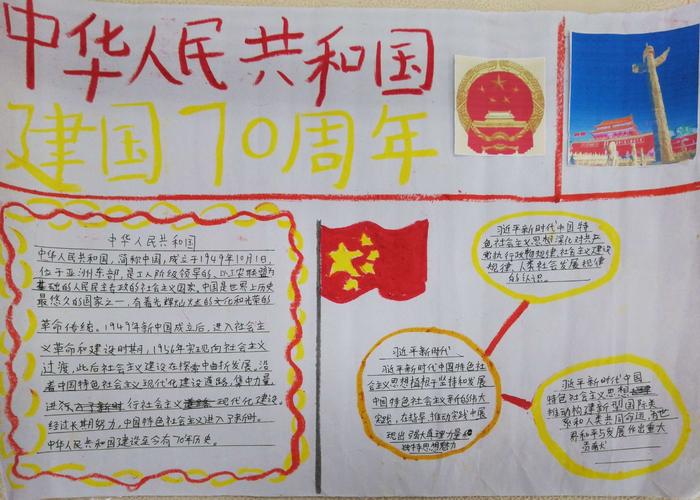 中华人民共和国
建国70周年
中华人民共和国
中华人民共和国,简称中国,成立于1949年10月1日,
位于亚洲东部,是工人阶级领导的,以工农联盟为
基础的人民民主专政的社会主义国家,中国是世界上历史
最悠久的国家之一,有着光辉灿烂的文化和光荣的
革命传统。1949年新中国成立后,进入社会主
义革命和建设时期,1956年实现向社会主义
过渡,此后社会主义建设在探索中曲折发展。沿
着中国特色社会主义现代化建设道路,集中力量
进行社会主义现代化建设,
经过长期努力,中国特色社会主义进入了新时
中华人民共和国建设至今有70年历史。
习近平新时代中国特
色社会主义思想深化对共产
党执行政规律、社会主义建设
规律、人类社会发展规律
的认识。
习近平新时代
习近平新时代中国特色社
会主义思想植根于坚持和发展
中国特色社会主义新的伟大
实践,在指导、推动实践中展
现出强大真理力量和
独特思想魅力
习近平新时代中国
特色社会主义思想
推动构建新型国际关
系和人类共同命运,为世
界和平与发展作出重大
贡献